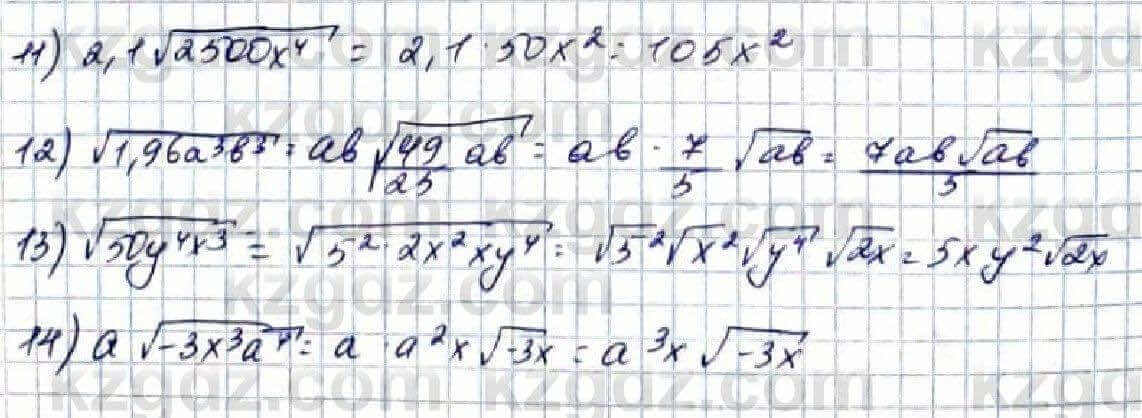 11) 2,1√2500x⁴ = 2,1·50x² = 105x²
12) √1,96a³b³ = ab√49/25 ab = ab · 7/5 √ab = 7ab√ab/5
13) √50y⁴x³ = √5²·2x²xy⁴ = √5²√x²√y⁴ √2x = 5xy²√2x
14) a√-3x³a⁴ = a·a²x√-3x = a³x√-3x
kzgdz.com